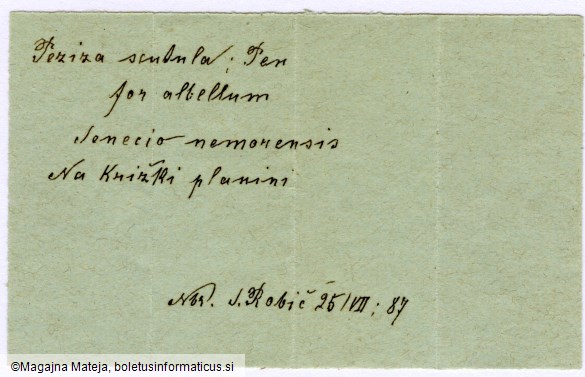 Peziza scutula; Pers
for albellum
Senecio nemorensis
Na Križki planini
Nbr. S. Robič 25/VII; 87
©Magajna Mateja, boletusinformaticus.si